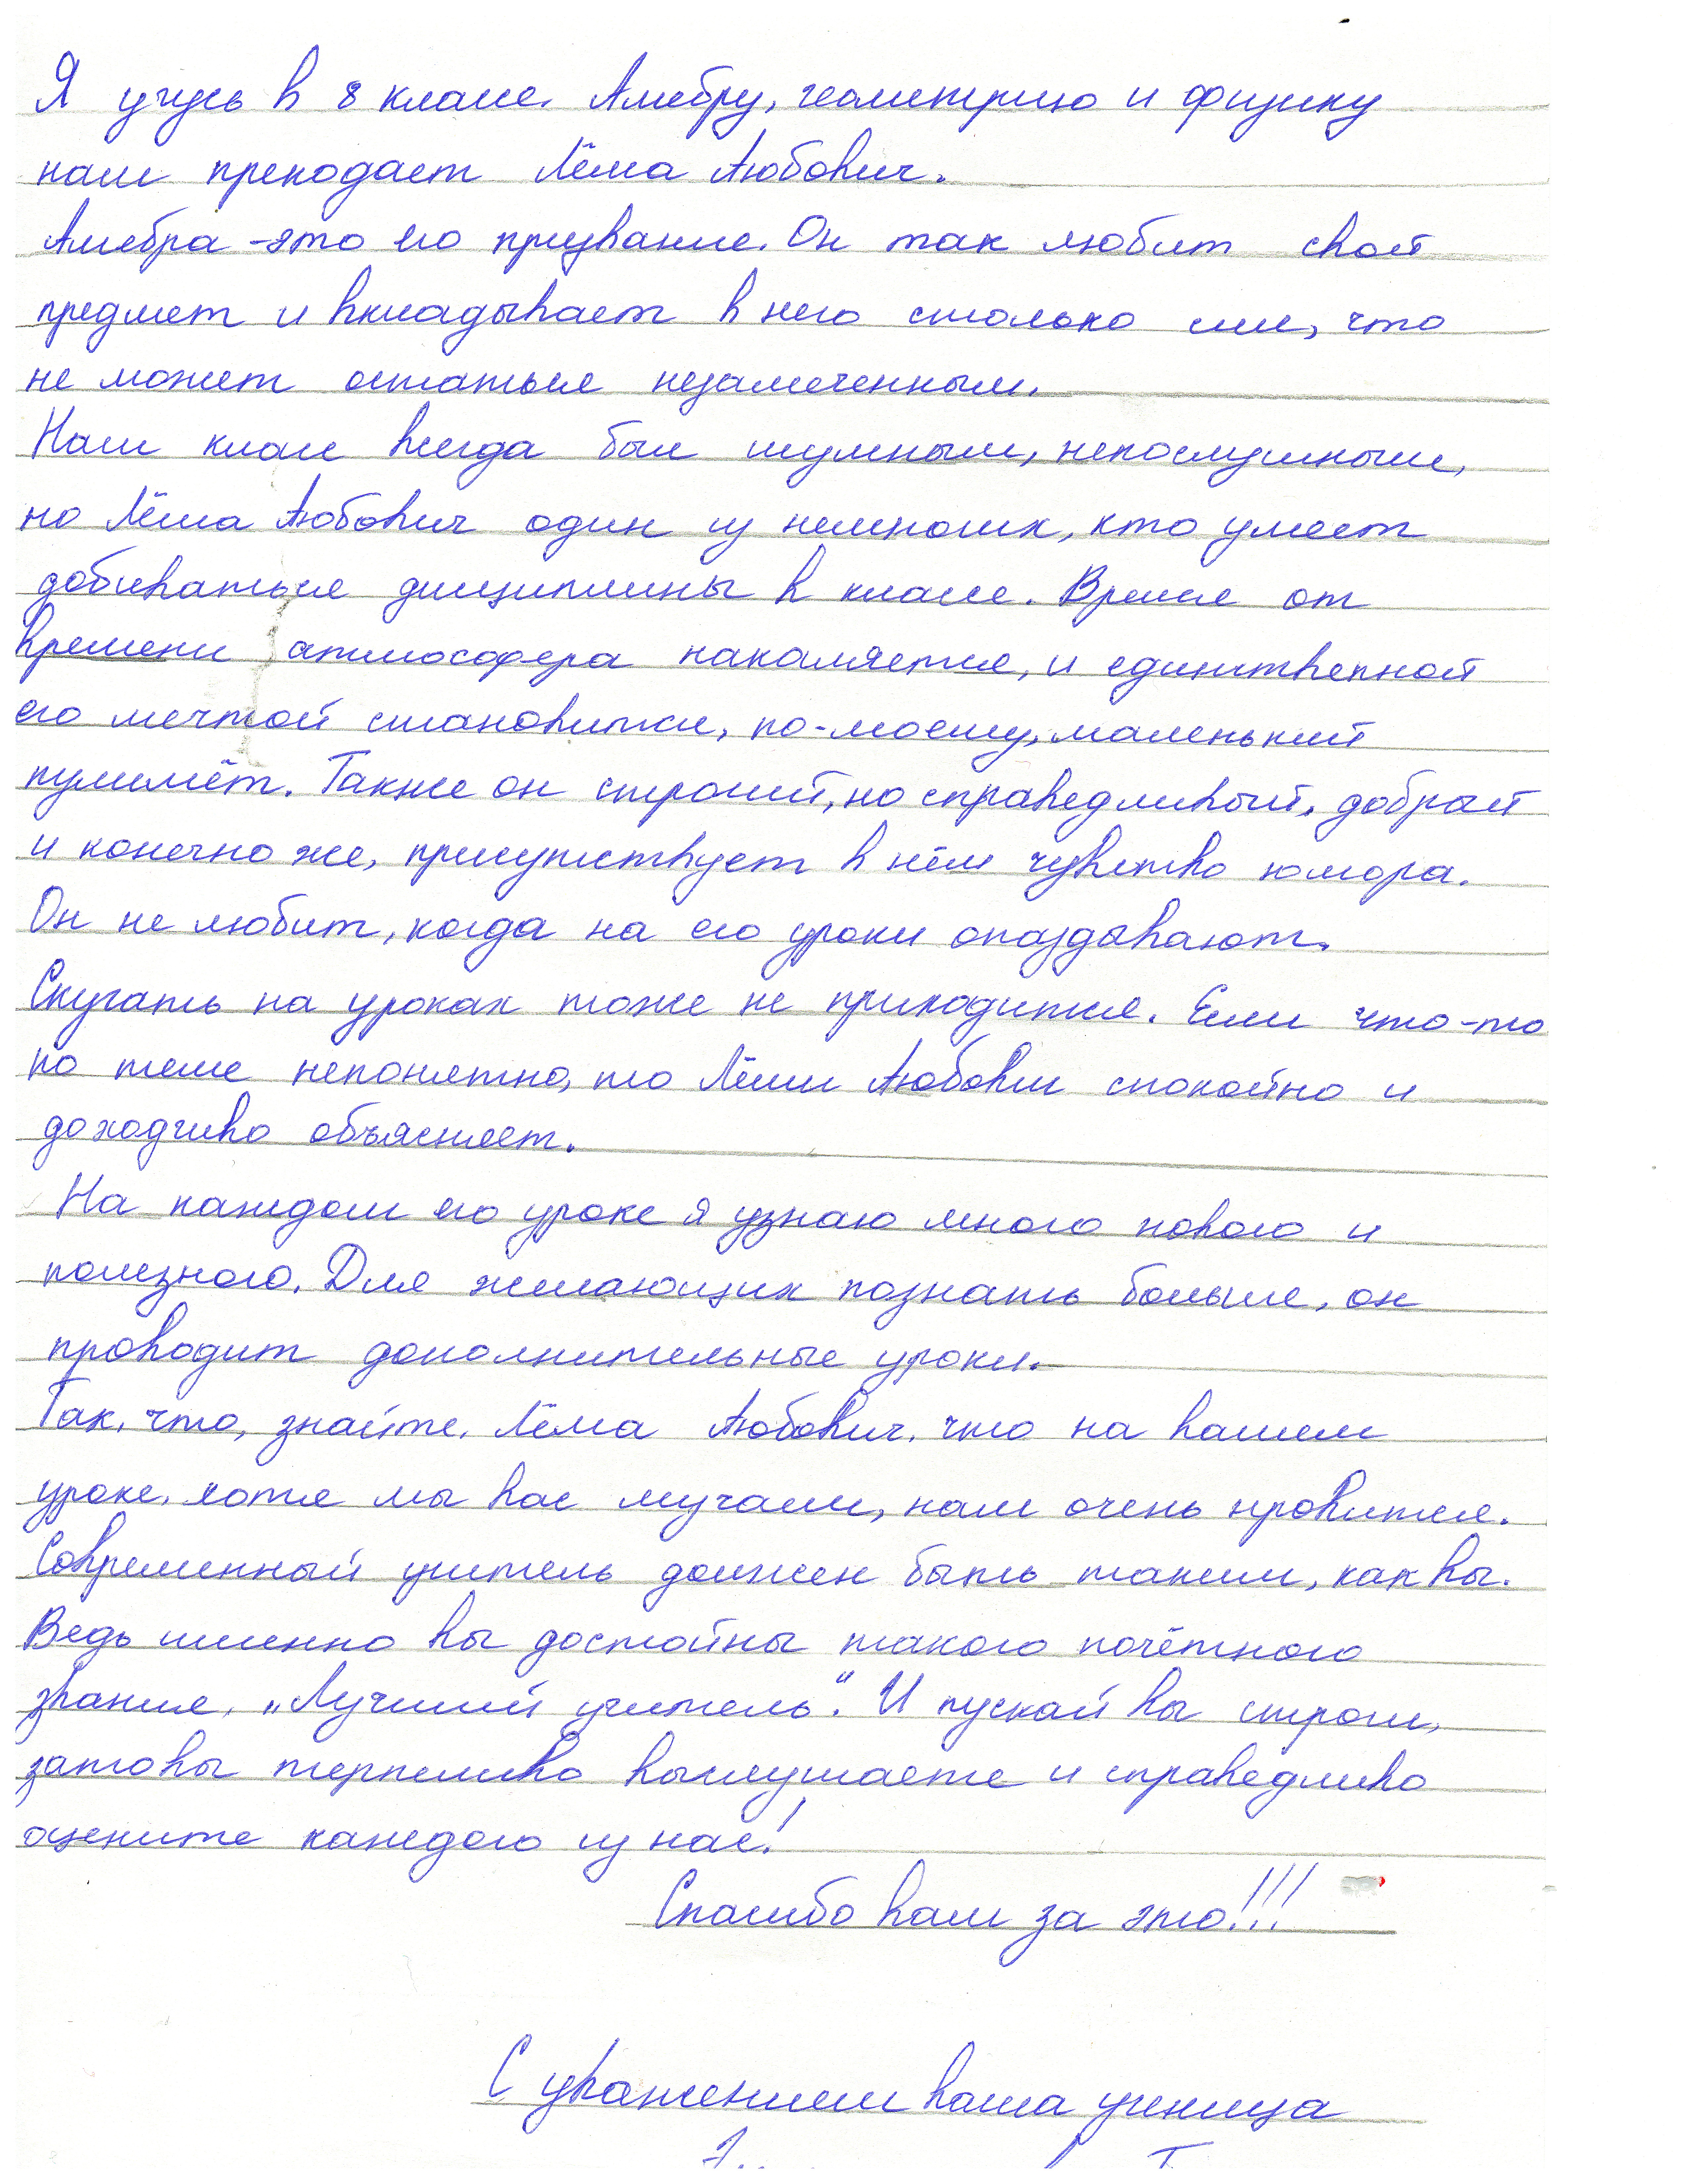 Я учусь в 8 классе. Алгебру, геометрию и физику
нам преподает Лёма Аюбович.
Алгебра - это его призвание. Он так любит свой
предмет и вкладывает в него столько сил, что
не может остаться незамеченным.
Наш класс всегда был шумным, непослушным,
но Лёма Аюбович один из немногих, кто умеет
добиваться дисциплины в классе. Время от
времени атмосфера накаляется, и единственной
его мечтой становится, по-моему, маленький
пулимёт. Также он строгий, но справедливый, добрый
и конечно же, присутствует в нём чувство юмора.
Он не любит, когда на его уроки опаздывают.
Скучать на уроках тоже не приходится. Если что-то
по теме непонятно, то Лёми Аюбович спокойно и
доходчиво объясняет.
На каждом его уроке я узнаю много нового и
полезного. Для желающих познать больше, он
проводит дополнительные уроки.
Так, что, знайте, Лёма Аюбович, что на вашем
уроке, хотя мы вас мучаем, нам очень нравится.
Современный учитель должен быть таким, как вы.
Ведь именно вы достойны такого почётного
звания, „Лучший учитель". И пускай вы строги,
зато вы терпеливо выслушаете и справедливо
оцените каждого из нас!
Спасибо вам за это!!!
С уважением ваша ученица